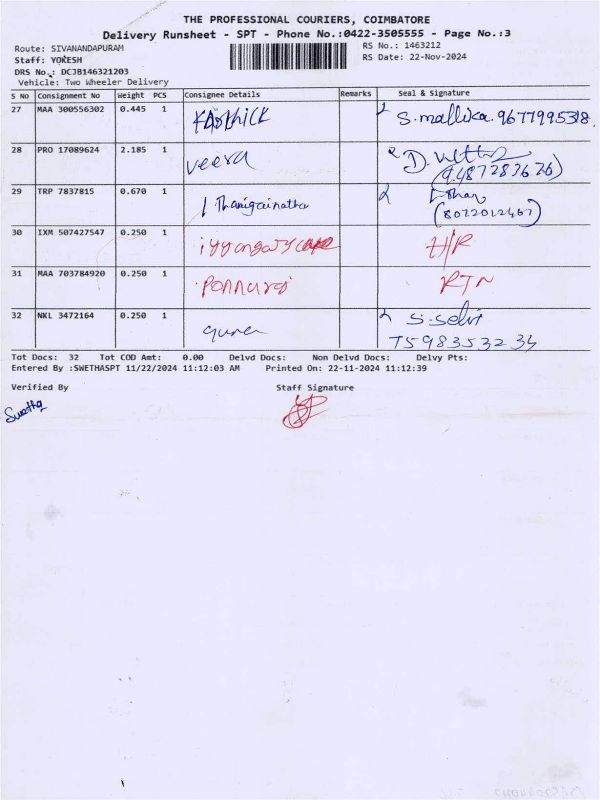 THE PROFESSIONAL COURIERS, COIMBATORE
Delivery Runsheet - SPT - Phone No.:0422-3505555 - Page No.:3
Route: SIVANANDAPURAM
RS No.: 1463212
Staff: YOKESH
RS Date: 22-Nov-2024
DRS No.: DCJB146321203
Vehicle: Two Wheeler Delivery
S No Consignment No Weight PCS Consignee Details Remarks Seal & Signature
27 MAA 300556302 0.445 1 Karthick S. mallika. 9677995318.
28 PRO 17089624 2.185 1 veera D.
(9487283626)
29 TRP 7837815 0.670 1 Thanigainatha
(8072012467)
30 IXM 507427547 0.250 1 iyyangary cafe H/R
31 MAA 703784920 0.250 1 Ponnuraj RTN
32 NKL 3472164 0.250 1 guna S. Selvi
7598353234
Tot Docs: 32 Tot COD Amt: 0.00 Delvd Docs: Non Delvd Docs: Delvy Pts:
Entered By :SWETHASPT 11/22/2024 11:12:03 AM Printed On: 22-11-2024 11:12:39
Verified By Staff Signature
Swetha